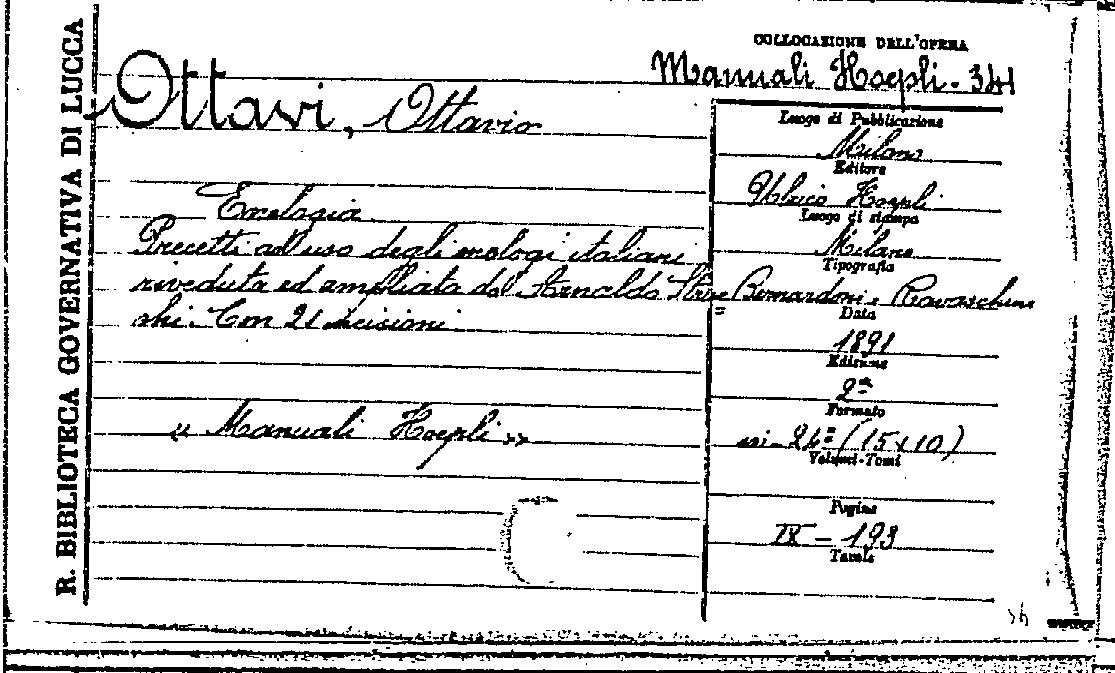 R. BIBLIOTECA GOVERNATIVA DI LUCCA
COLLOCAZIONE DELL'OPERA
Manuali Hoepli - 341
Ottavi, Ottavio
Enologia
Precetti ad uso degli enologi italiani
riveduta ed ampliata da Arnaldo Stru=
shi. Con 21 incisioni
« Manuali Hoepli »
Luogo di Pubblicazione
Milano
Editore
Ulrico Hoepli
Luogo di stampa
Milano
Tipografia
Bernardoni e
Data
1891
Edizione
2ª
Formato
in-24º (15x10)
Volumi-Tomi
Pagine
IX - 193
Tavole